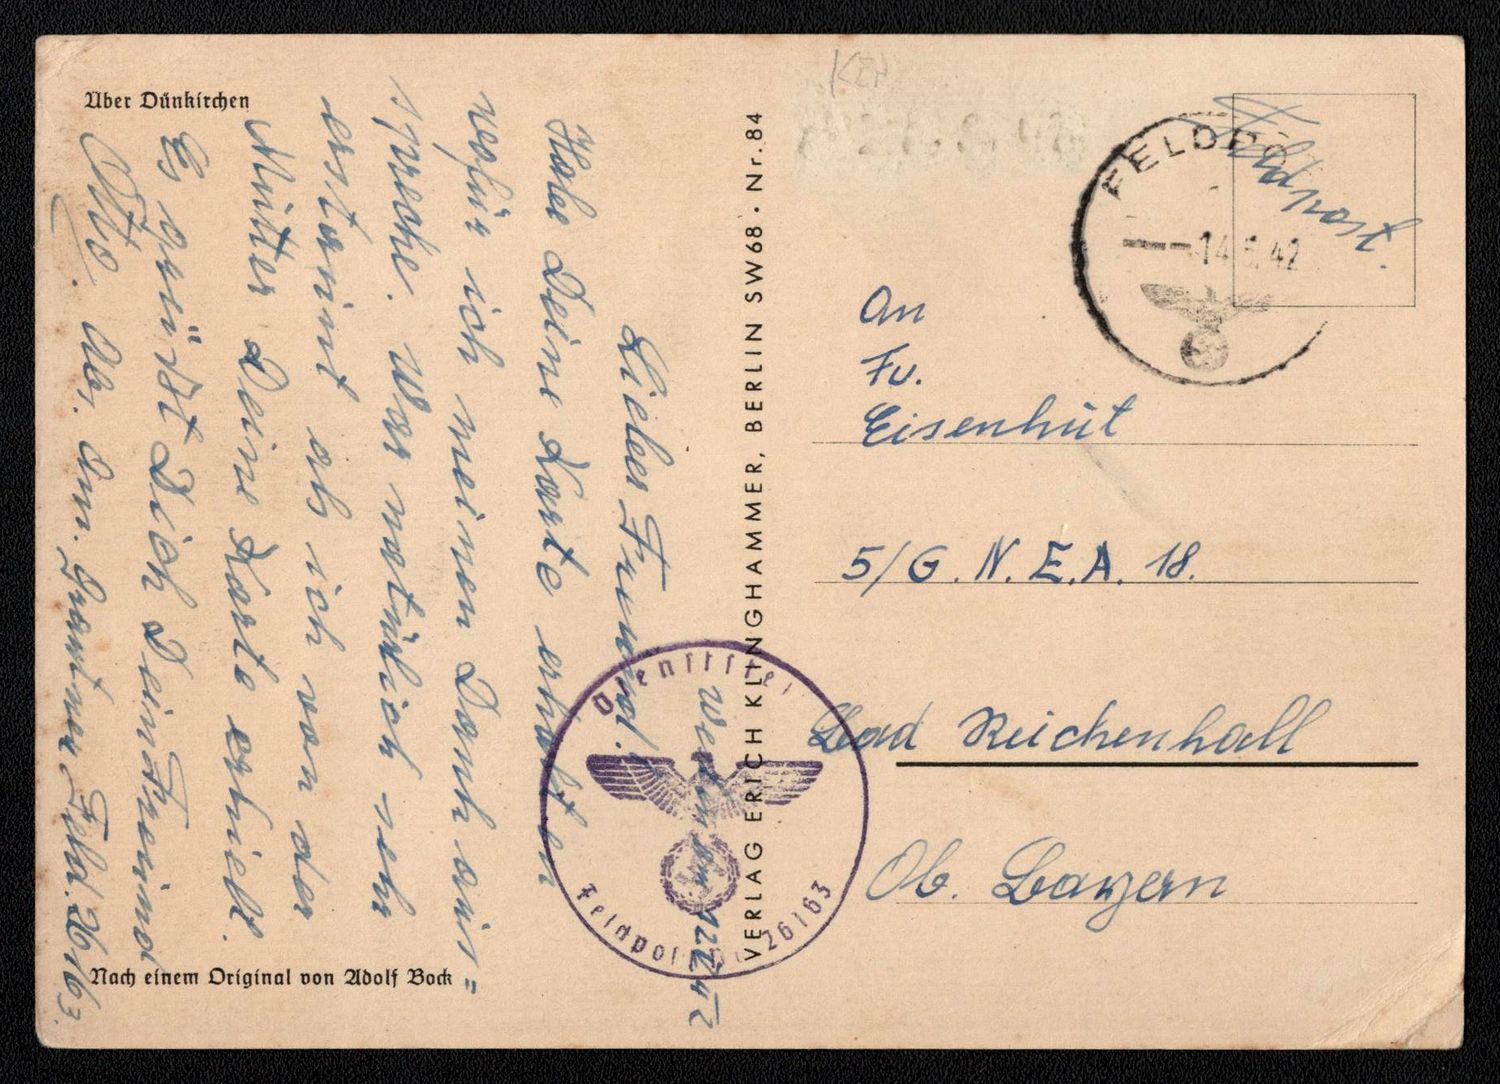 Über Dünkirchen
Lieber Freund!
Habe Deine Karte erhalten
wofür ich meinen Dank aus=
spreche. War natürlich sehr
erstaunt als ich von der
Mutter Deine Karte erhielt.
Es grüßt Dich Dein Freund
Otto.
Abs. Gartner Feld. 26163.
Nach einem Original von Adolf Bock
VERLAG ERICH KLINGHAMMER, BERLIN SW68 · Nr. 84
Feldpost.
FELDPO
14.5.42
An
Fu.
Eisenhut
5/G.N.E.A. 18.
Bad Reichenhall
Ob. Bayern
Feldpost 26163